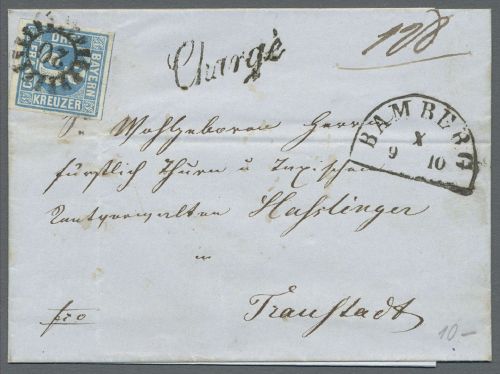 20
DREI
BAYERN
KREUZER
Chargé
128
BAMBERG
X
9 10
Sr. Wohlgeboren Herrn
fürstlich Thurn u Taxischen
Rentverwalter Hasslinger
in
fco
Traustadt
10.-